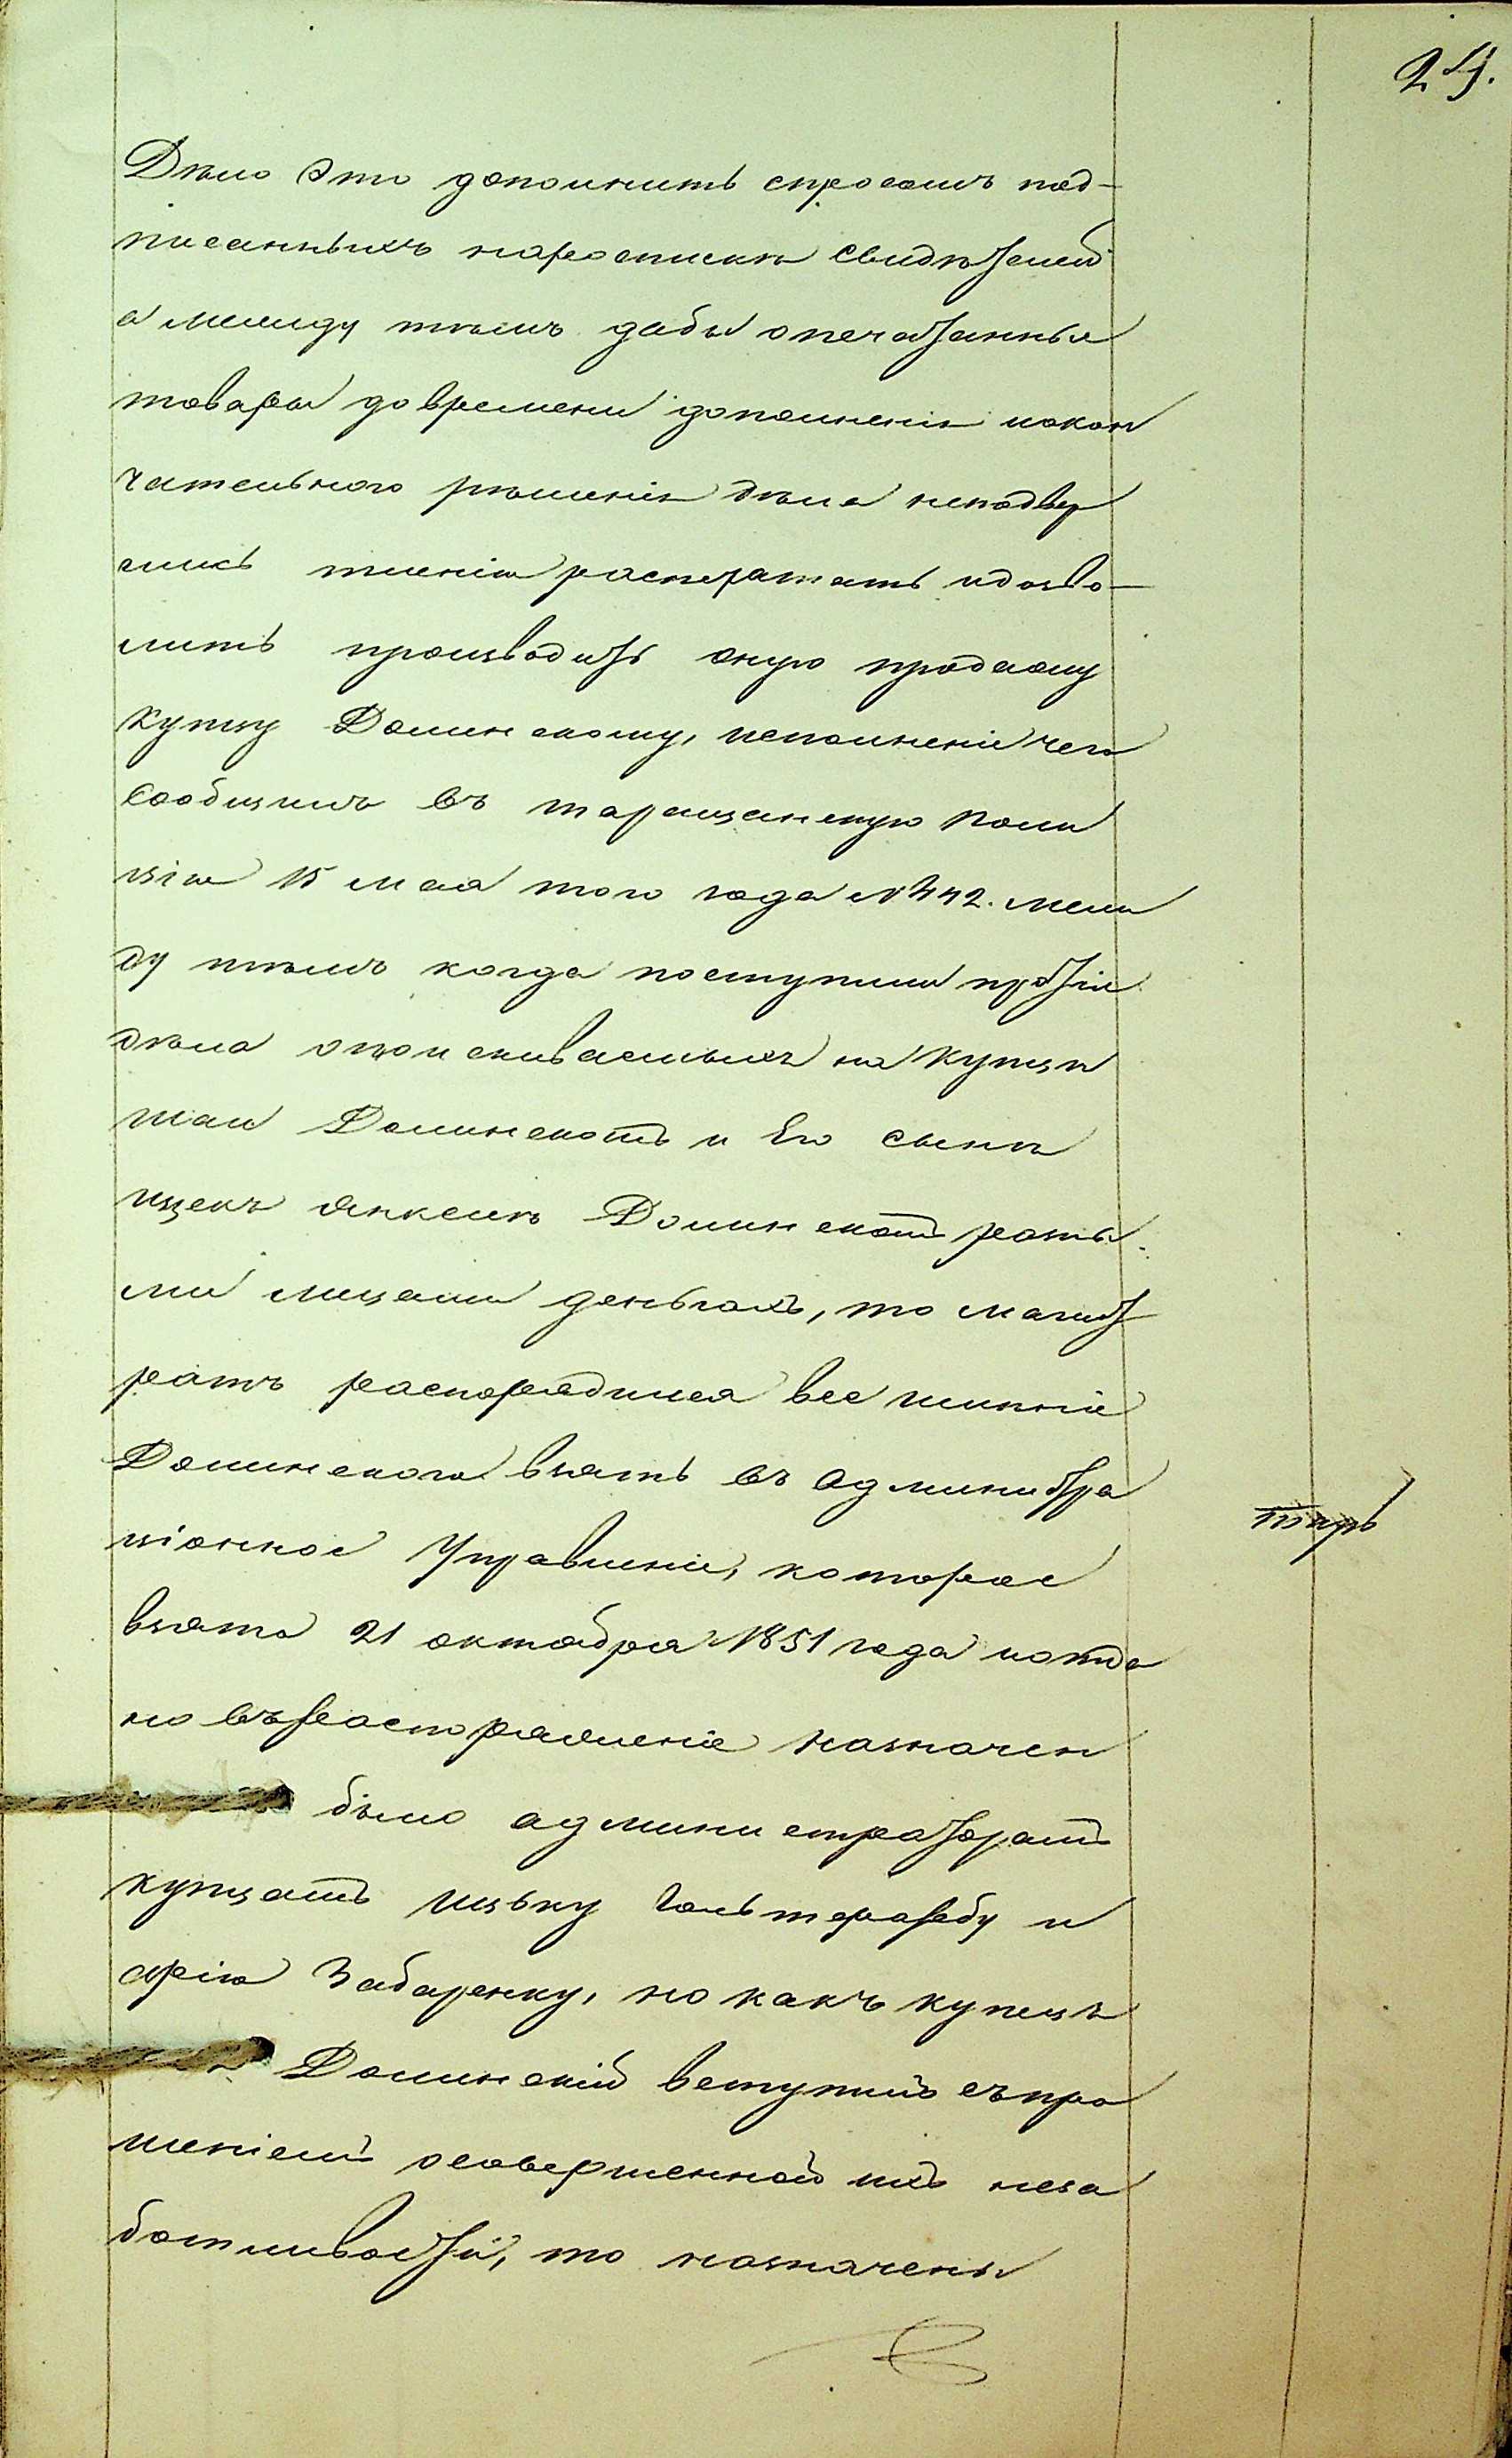 Дѣло Это дополнить спросомъ под-
писанныхъ наросписки Свидѣтелей
а между тѣмъ дабы опечатанныя
товары до времени дополненія иокон
чательнаго рѣшенія дѣла неподвер
глись тленію распечатать идозво-
лить производить оную продажу
Купцу Долинскому, исполненіе чего
Сообщилъ въ таращанскую Поли
цію 15 мая того года № 442. Меж
ду тѣмъ когда поступили протчіе
дѣла овзыскиваемыхъ на Купцѣ
Долинскомъ и Его сынѣ
Янкелѣ Долинскомъ разны-
ми лицами деньгахъ, то Магист
ратъ распорядился все имѣніе
Долинскаго взять въ администра
ціонное Управленіе, которое
взято 21 октября 1851 года иотда
но въраспоряженіе назначен
было администраторамъ
купцамъ Ицьку и
Арію Забаренку, но какъ купецъ
Долинскій вступилъ съпро
шеніемъ осовершенной ихъ неза
ботливости, то назначены